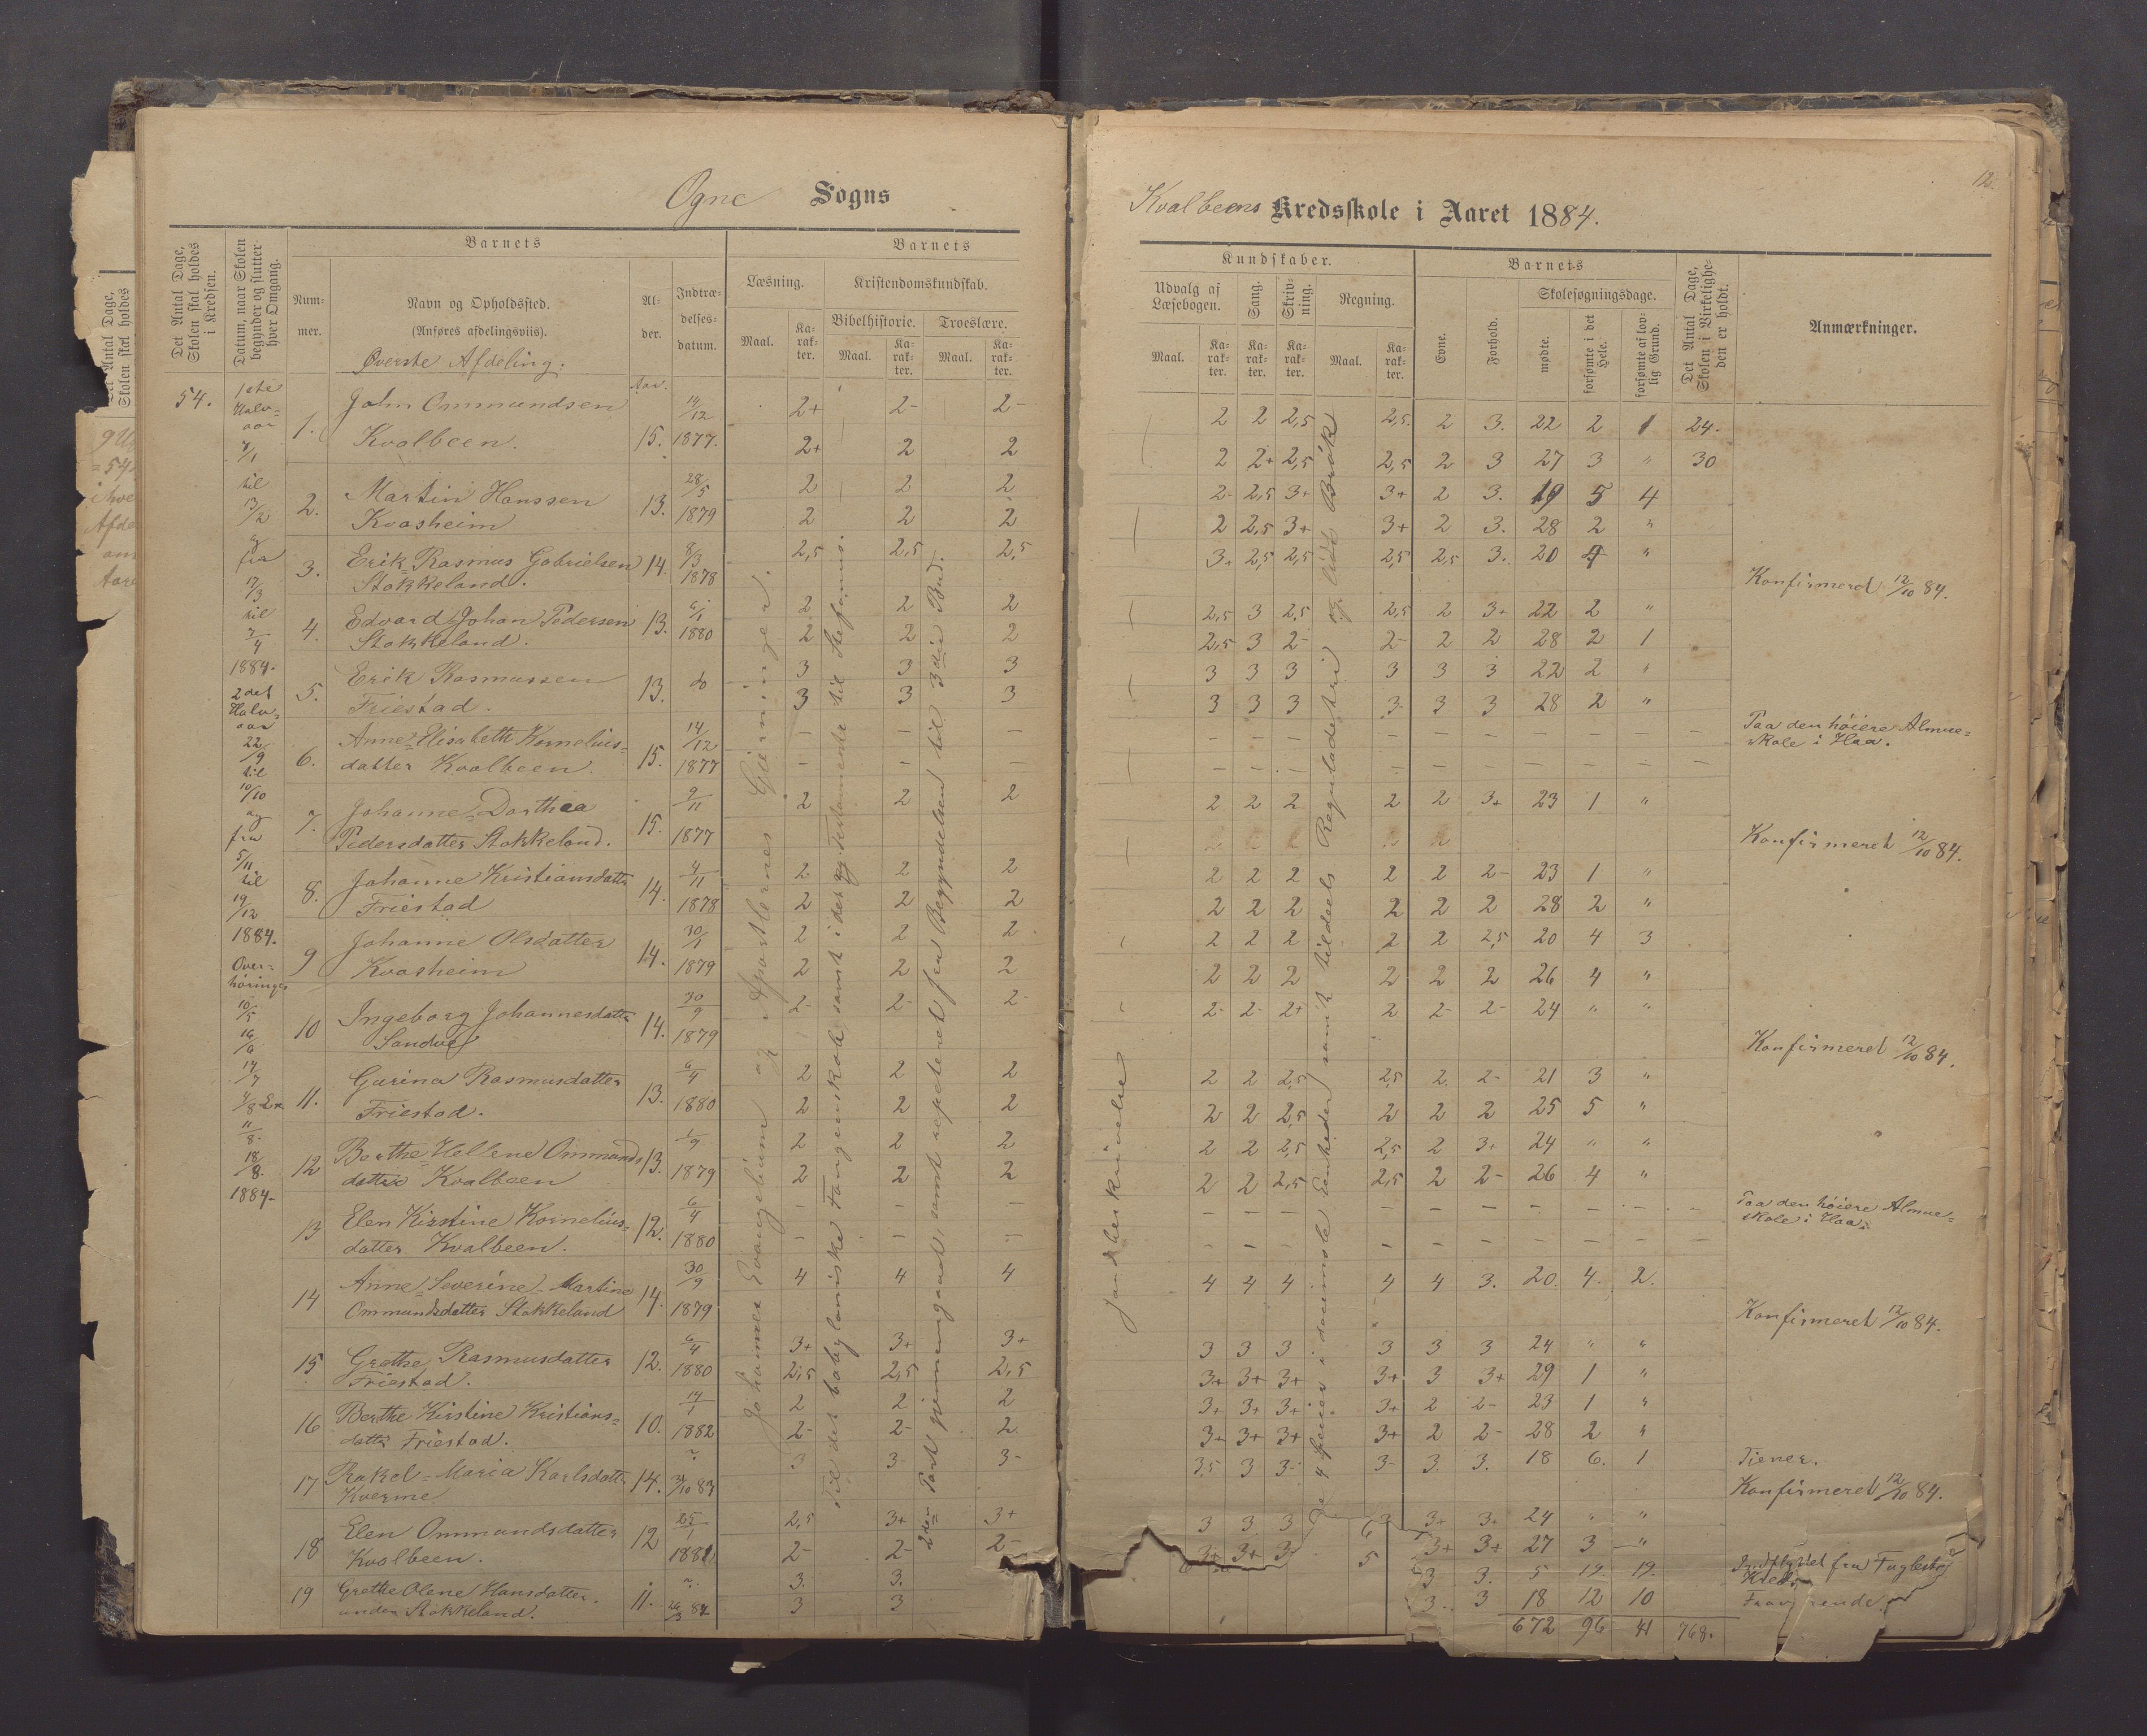 Ogne Sogns
Det Antal Dage, Skolen skal holdes i Kredsen.
Datum, naar Skolen begynder og slutter hver Omgang.
Barnets
Nummer.
Navn og Opholdssted.
(Anføres afdelingsviis).
Øverste Afdeling.
Alder.
Indtrædelsesdatum.
Barnets
Læsning.
Kristendomskundskab.
Bibelhistorie.
Troeslære.
Maal.
Karakter.
Maal.
Karakter.
Maal.
Karakter.
54.
1ste
Halv=
aar
7/1
til
13/2
og
fra
17/3
til
7/4
1884.
2det
Halv=
aar
22/9
til
10/10
og
fra
5/11
til
19/12
1884.
Over=
høringer
10/5
16/6
14/7
4/8
11/8.
18/8.
1884.
Aar.
1. John Ommundsen 14/12 2+ 2- 2-
Kvalbeen. 15. 1877. 2+ 2 2
2. Martin Hanssen 13. 28/5 2 2 2
Kvasheim 1879 2 2 2
3. Erik Rasmus Gabrielsen 14. 8/3 2,5 2,5 2,5
Stokkeland. 1878
4. Edvard Johan Pedersen 13. 6/1 2 2 2
Stokkeland. 1880 2 2 2
5. Erik Rasmussen 13. do 3 3 3
Friestad. 3 3 3
6. Anne Elisabeth Kornelius= 14/12 — — —
datter Kvalbeen. 15. 1877 — — —
7. Johanne Dorthea 15. 9/11 2 2 2
Pedersdatter Stokkeland. 1877
8. Johanne Kristiansdatter 14. 4/11 2. 2 2
Friestad 1878 2 2 2
9 Johanne Olsdatter 14. 30/1 2 2 2
Kvasheim 1879 2 2 2
10 Ingeborg Johannesdatter 14. 30/9 2- 2- 2-
Sandve 1879
11. Gurina Rasmusdatter 13. 6/4 2 2 2
Friestad. 1880 2 2 2
12 Berthe Hellene Ommunds 13. 1/9 2 2 2
datter Kvalbeen 1879 2 2 2
13 Elen Kirstine Kornelius= 12. 6/4 — — —
datter Kvalbeen. 1880 — — —
14 Anne Severine Martine 14. 30/9 4 4 4
Ommundsdatter Stokkeland 1879
15 Grethe Rasmusdatter 12. 6/4 3+ 3+ 3+
Friestad. 1880 2,5 2,5 2,5
16 Berthe Kirstine Kristians= 10. 2 2 2
datter Friestad. 1882 2- 2- 2.
17 Rakel=Maria Karlsdatter 14. 3 3- 3-
Kverme
18 Elen Ommundsdatter 12 25/1 2,5 3+ 3+
Kvalbeen. 2- 2- 2-
19 Grethe Olene Hansdatter. 11. 3. 3.
under Stokkeland. 3 3
Johannes Evangelium og Apostlernes Gjerninger.
Til det babyloniske Fangenskab samt i det ny Testamente til Stefanus.
2den Part gjennemgaaet, samt repeteret fra Begyndelsen til 3die Bud.
12.
Kvalbeens Kredsskole i Aaret 1884.
Kundskaber.
Udvalg af Læsebogen.
Sang.
Skrivning.
Regning.
Maal.
Karakter.
Karakter.
Karakter.
Maal.
Karakter.
Barnets
Evne.
Forhold.
Skolesøgningsdage.
mødte.
forsømte i det Hele.
forsømte af lovlig Grund.
Det Antal Dage, Skolen i Virkeligheden er holdt.
Anmærkninger.
2 2 2,5 2,5. 2 3. 22 2 1 24.
2 2+ 2,5 2,5 2 3 27 3 " 30
2- 2,5 3+ 3+ 2 3. 19 5 4
2 2,5 3+ 3+ 2 3. 28 2 "
3+ 2,5 2,5 2,5 2,5 3. 20 4 "
Konfirmeret 12/10 84.
2,5 3 2,5 2,5 2 3+ 22 2 "
2,5 3 2- 2- 2 2 28 2 1
3 3 3 3 3 3 22 2 "
3 3 3 3 3 3 28 2 "
— — — — — — — — — — Paa den høiere Almue=
skole i Haa.
— — — — — — — — — —
2 2 2 2 2 3+ 23 1 "
Konfirmeret 12/10 84.
2 2 2 2 2 2- 23 1 "
2 2 2 2 2 2 28 2 "
2 2 2 2 2 2,5 20 4 3
2 2 2 2 2 2 26 4 "
2- 2- 2+ 2 2- 2- 24 " "
Konfirmeret 12/10 84.
2 2 2,5 2,5 2 2- 21 3 "
2 2 2,5 2 2 2 25 5 "
2 2 2,5 2,5 2 3+ 24 " "
2 2 2,5 2,5 2 2- 26 4 "
— — — — — — — — — — Paa den høiere Almue=
skole i Haa.
— — — — — — — — — —
4 4 4 4 4 3. 20. 4. 2.
Konfirmeret 12/10 84.
3 3 3 3 3 3 24 " "
3+ 3+ 3+ 3+ 3 3+ 29 1 "
3+ 3+ 3+ 3+ 2 2- 23 1 "
3+ 3+ 3+ 3+ 2 2- 28 2 "
3,5 3 3- 3- 3. 3. 18 6. 1 Tjener.
Konfirmeret 12/10 84.
3 3 3 3+ 3+ 24 " "
3+ 3+ 3 3+ 3+ 27 3 "
3 3. 5 19. 19. Indflyttet fra Fuglestad
3. 3 18 12 10
672 96 41 768.
Jordbeskrivelse
De 4 Specier i decimale Eenheder samt tildeels Reguladetri og lidt Brøk